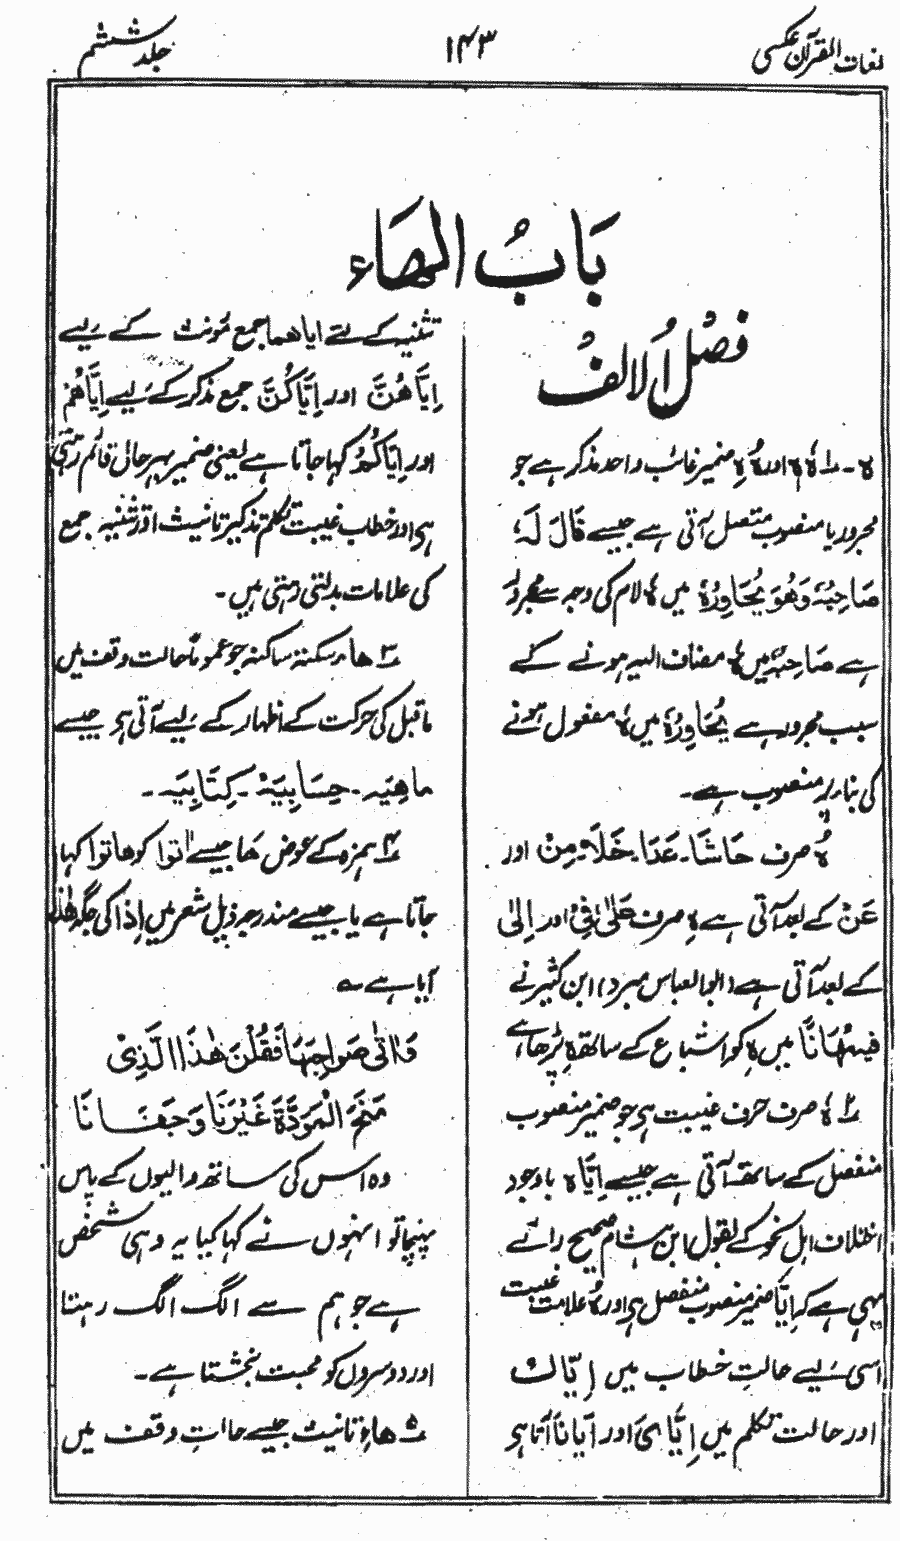 لغات القرآن عکسی
۱۴۳
جلد ششم
بَابُ الهَاء
فصلُ الالفُ
ہ ۔ ۱؎ ہٗ ہٗ اور ہُ ہِ ضمیر غائب واحد مذکر ہے جو
مجرور یا منصوب متصل آتی ہے جیسے قَالَ لَہٗ
صَاحِبُہٗ وَهُوَ يُحَاوِرُهٗ میں ہٗ لام کی وجہ سے مجرور
ہے صَاحِبُہٗ میں ہٗ مضاف الیہ ہونے کے
سبب مجرور ہے يُحَاوِرُهٗ میں ہٗ مفعول ہونے
کی بناء پر منصوب ہے ۔
ہُ حرف حَاشَا ۔ عَدَا ۔ خَلَا ۔ مِنْ اور
عَنْ کے بعد آتی ہے ہِ حرف عَلٰی فِیْ اور اِلٰی
کے بعد آتی ہے (ابوالعباس مبرد) ابن کثیر نے
فیھٖ مُهَانًا میں ہِ کو اشباع کے ساتھ پڑھا ہے
۲؎ ہٗ حرف حرف غیبت ہی جو ضمیر منصوب
منفصل کے ساتھ آتی ہے جیسے اِیَّاہُ باوجود
اختلاف اہل نحو کے بقول ابن ہشام صحیح رائے
یہی ہے کہ اِیَّا ضمیر منصوب منفصل ہی اور ہٗ علامت غیبت
اسی لیے حالتِ خطاب میں اِیَّاكَ
اور حالت تکلم میں اِیَّایَ اور اِیَّانَا آتا ہی
تثنیہ کے لئے ایاھما جمع مونث کے لیے
اِیَّاهُنَّ اور اِیَّاکُنَّ جمع مذکر کے لیے اِیَّاهُمْ
اور اِیَّاکُمْ کہا جاتا ہے یعنی ضمیر بہر حال قائم رہتی
ہی اور خطاب غیبت تکلم تذکیر تانیث اور تثنیہ جمع
کی علامات بدلتی رہتی ہیں ۔
۳؎ ھاءِ سکتہ ساکنہ جو عموماً حالت وقف میں
ماقبل کی حرکت کے اظہار کے لیے آتی ہی جیسے
ماهِیَہ ۔ حِسَابِیَہْ ۔ کِتَابِیَہ ۔
۴؎ ہمزہ کے عوض ھَا جیسے أاتوا کو ھاتوا کہا
جاتا ہے یا جیسے مندرجہ ذیل شعر میں اِذَا کی جگہ
آیا ہے ۔
وَاَتٰی صَوَاحِبَهَا فَقُلْنَ هٰذَا الَّذِیْ
مَنَحَ الْمَوَدَّةَ غَيْرَنَا وَجَفَانَا
وہ اس کی ساتھ والیوں کے پاس
پہنچا تو انہوں نے کہا کیا یہ وہی شخص
ہے جو ہم سے الگ الگ رہتا
اور دوسروں کو محبت بخشتا ہے ۔
۵؎ ھاءِ تانیث جیسے حالتِ وقف میں